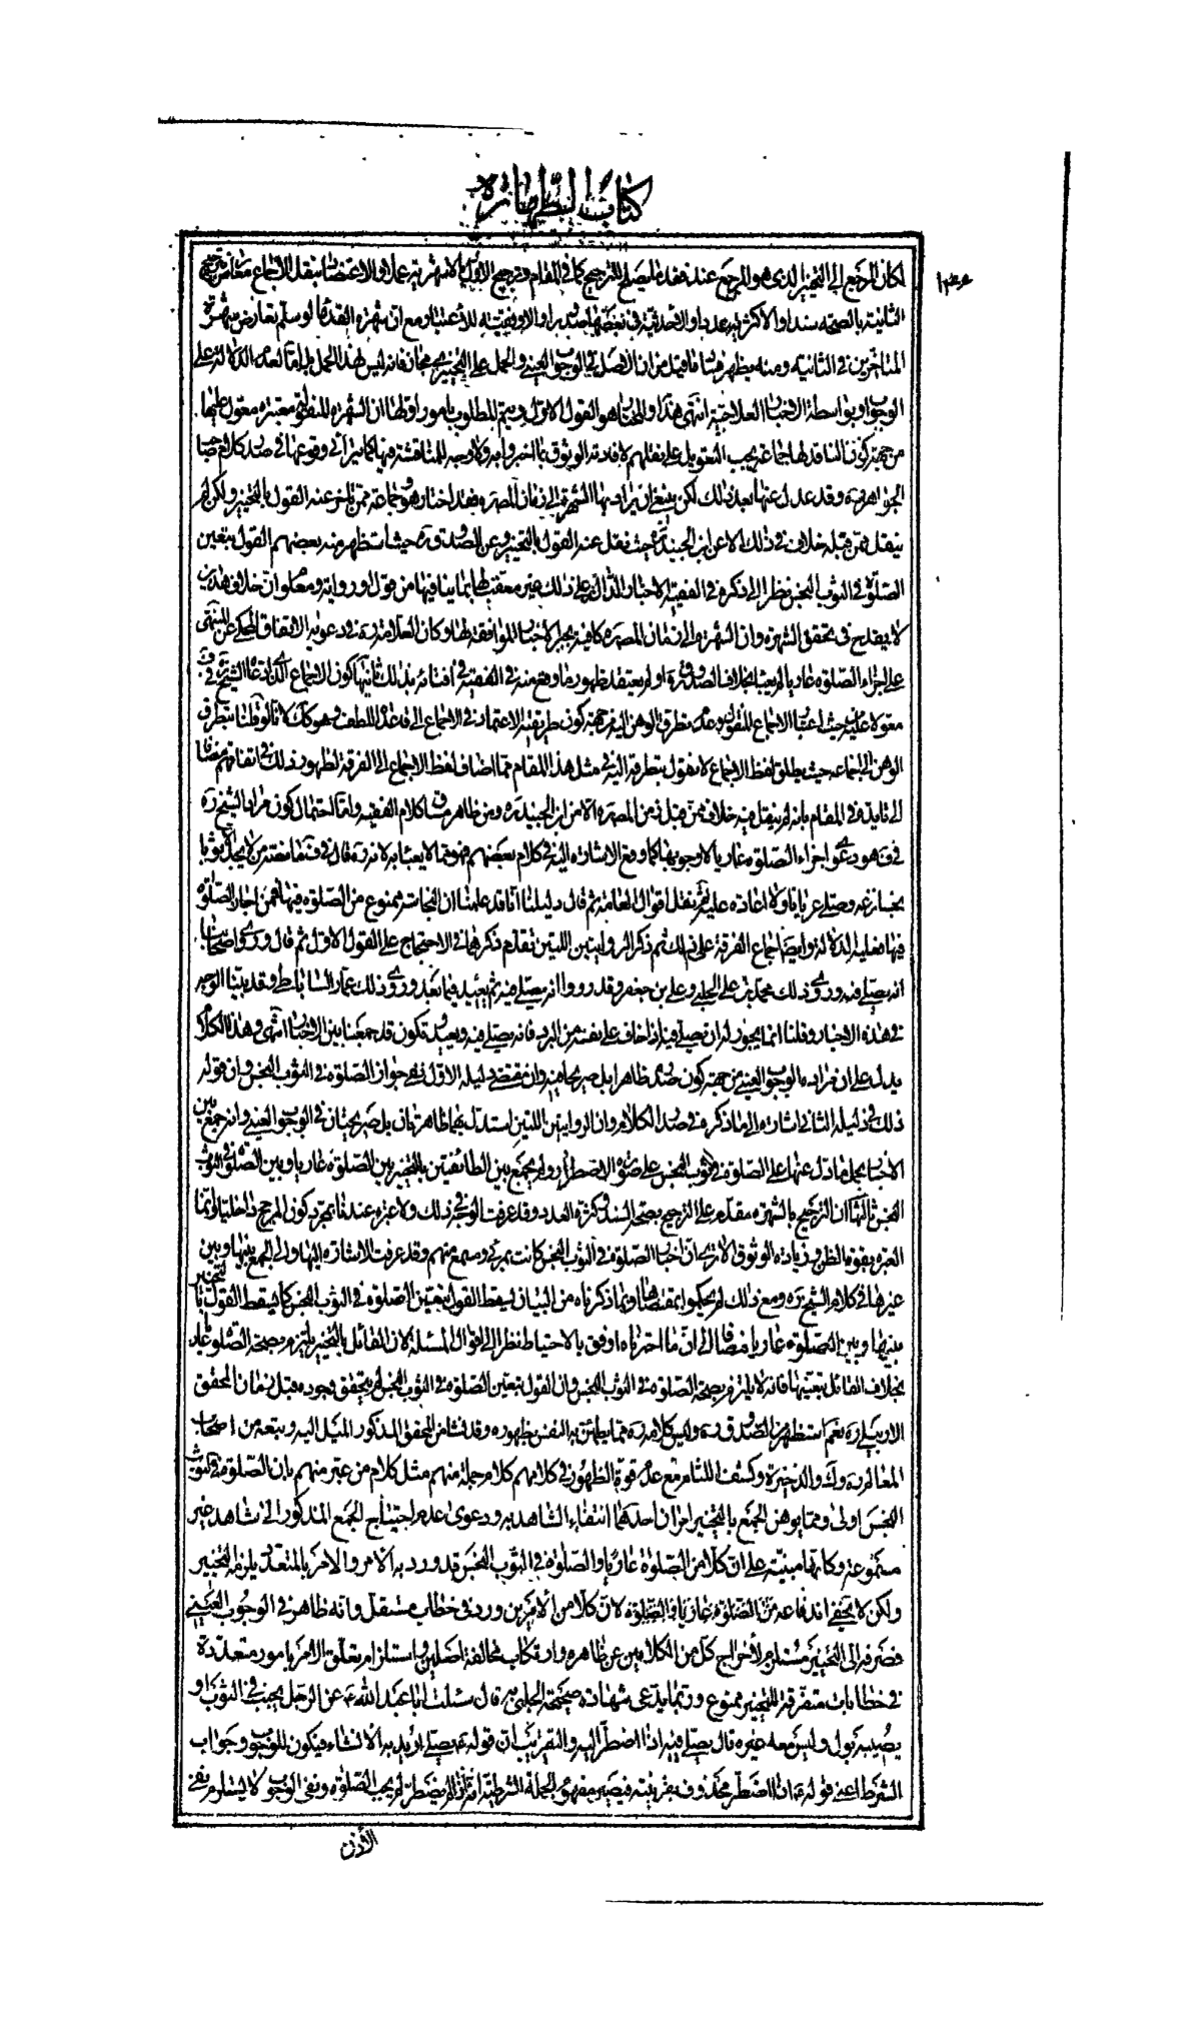 كتاب الطهارة
لكان المرجع الى التخيير الذي هو المرجع عند فقد ما يصلح للترجيح كما في المقام وترجيح الأولى بالاشهرية عملا والاعتضاد بنقل الاجماع معارض بترجيح
الثانية بالصحة سندا والاكثرية عددا والاحدثية في بعضها والاوفقية للاعتبار مع ان شهرة القدماء لو سلم تعارض بشهرة
المتأخرين في الثانية ومنه يظهر فساد ما قيل من ان الاصل في الوجوب العيني والحمل على التخييري مجاز فانه ليس هذا الحمل بل اما لعدم الدلالة على
الوجوب او بواسطة الاخبار العلاجية انتهى هذا والمختار هو القول الاول ويتم المطلوب بامور اولها ان الشهرة المنقولة معتبرة معول عليها
من جهة كون الناقل لها جماعة يجب التعويل على نقلهم لافادته الوثوق بما اخبروا به ولا وجه للمناقشة فيها كما تراى وقوعها في صدر كلام صاحب
الجواهر ره وقد عدل عنها بعد ذلك لكن ينبغي ان يراد بها الشهرة الى زمان المص ره فقد اختار هو وجماعة ممن تاخر عنه القول بالتخيير ولكن لم
ينقل ممن قبله خلاف في ذلك الا عن ابن الجنيد ره حيث نقل عنه القول بالتخيير وعن الصدوق ره حيث استظهر منه بعضهم القول بتعين
الصلوة في الثوب النجس نظرا الى ذكره في الفقيه الاخبار الدالة على ذلك غير معقب لها بما ينافيها من قول ورواية ومعلوم ان خلاف هذين
لا يقدح في تحقق الشهرة وان الشهرة الى زمان المص ره كافية بجبر الاخبار الموافقة لها وكان العلامة ره في دعويه الاتفاق المحكي عن المنتهى
على اجزاء الصلوة عاريا لم يعبأ بخلاف الصدوق ره او لم يعتقد ظهور ما وقع منه في الفقيه في افتائه بذلك ثانيها كون الاجماع الذي ادعاه الشيخ ره في ف
معولا عليه من حيث اعتبار الاجماع المنقول وعدم تطرق الوهن اليه من جهة كون طريقته الاعتماد في الاجماع الى قاعدة اللطف وهو كك لانا لو قلنا بتطرق
الوهن الى اجماعه حيث يطلق لفظ الاجماع لا نقول بتطرقه اليه في مثل هذا المقام مما اضاف لفظ الاجماع الى الفرقة لظهور ذلك في اتفاقهم مضافا
الى تايده في المقام بانه لم ينقل فيه خلاف ممن قبل زمن المص ره الا من ابن الجنيد ره ومن ظاهر مساق كلام الفقيه واما احتمال كون مراد الشيخ ره
في ف هو دعوى اجزاء الصلوة عاريا لا وجوبها كما وقع الاشارة اليه في كلام بعضهم فهو مما لا يعبأ به لانه ره قال في ف مسئلة من لا يجد الا ثوبا
نجسا نزعه وصلى عريانا ولا اعادة عليه ثم نقل اقوال العامة ثم قال دليلنا انا قد علمنا ان النجاسة ممنوع من الصلوة فيها فمن اجاز الصلوة
فيها فعليه الدلالة وايضا اجماع الفرقة على ذلك ثم ذكر الروايتين اللتين تقدم ذكرهما في الاحتجاج على القول الاول ثم قال وروى اصحابنا
انه يصلي فيه وروى ذلك محمد بن علي الحلبي وعلي بن جعفر وقد رووا انه يصلي فيه ثم يعيد فيما بعد وروى ذلك عمار الساباطي وقد بينا الوجه
في هذه الاخبار وقلنا انما يجوز له ان يصلي فيه اذا خاف على نفسه من البرد فانه يصلي فيه ويعيد وتكون قد جمعنا بين الاخبار انتهى وهذا الكلام
يدل على ان مراده بالوجوب العيني من جهة كون صدره ظاهرا بل صريحا فيه وان مقتضى دليله الاول نفي جواز الصلوة في الثوب النجس وان قوله
ذلك في دليله الثاني اشارة الى ما ذكره في صدر الكلام وان الروايتين اللتين استدل بهما ظاهرتان بل صريحتان في الوجوب العيني وانه جمع بين
الاخبار بحمل ما دل منها على الصلوة في الثوب النجس على صورة الاضطرار ولم يجمع بين الطائفتين بالتخيير بين الصلوة عاريا وبين الصلوة في الثوب
النجس ثالثها ان الترجيح بالشهرة مقدم على الترجيح بصحة السند وكثرة العدد وقد عرفت الوجه في ذلك ولا عبرة عندنا بمجرد كون المرجح داخليا وانما
العبرة بقوة الظن وزيادة الوثوق الا ترى ان اخبار الصلوة في الثوب النجس كانت بمرئى ومسمع منهم وقد عرفت الاشارة اليها والى الجمع بينها وبين
غيرها في كلام الشيخ ره ومع ذلك لم يحكموا بمقتضاها وبما ذكرناه من البيان ليسقط القول بتعين الصلوة في الثوب النجس كما يسقط القول بالتخيير
بينها وبين الصلوة عاريا مضافا الى ان ما اخترناه اوفق بالاحتياط نظرا الى اقوال المسئلة لان القائل بالتخيير يلتزم بصحة الصلوة عاريا
بخلاف القائل بتعينها فانه لا يلتزم بصحة الصلوة في الثوب النجس وان القول بتعين الصلوة في الثوب النجس لم يتحقق وجوده قبل زمان المحقق
الاردبيلي ره نعم استظهر من الصدوق ره وليس كلامه ره مما يطمئن به النفس بظهوره وقد نشأ من المحقق المذكور الميل اليه وتبعه من اصحاب
المعالم ره وك والذخيرة وكشف اللثام مع عدم قوة الظهور في كلامهم كلام جملة منهم مثل كلام من عبر منهم بان الصلوة في الثوب
النجس اولى ومما يوهن الجمع بالتخيير امران احدهما انتفاء الشاهد به ودعوى عدم احتياج الجمع المذكور الى شاهد غير
مسموعة وكانها مبنية على ان كلا من الصلوة عاريا والصلوة في الثوب النجس قد ورد به الامر والامر بالمتعدد يلزمه التخيير
ولكن لا يخفى اندفاعه من الصلوة عاريا والصلوة لان كلا من الأمرين ورد في خطاب مستقل وانه ظاهر في الوجوب العيني
فصرفه الى التخيير مستلزم لأخراج كل من الكلامين عن ظاهره وارتكاب مخالفة اصلين واستلزام تعلق الامر بامور متعددة
في خطابات متفرقة للتخيير ممنوع وربما يدعى شهادة صحيحة الحلبي به قال سئلت ابا عبد الله ع عن الرجل يجنب في الثوب او
يصيبه بول وليس معه غيره قال يصلي فيه اذا اضطر اليه والتقريب ان قوله ع يصلي اريد به الانشاء فيكون للوجوب وجواب
الشرط اعني قوله ع اذا اضطر محذوف بقرينته فيصير مفهوم الجملة الشرطية انه اذا لم يضطر لم يجب الصلوة ونفى الوجوب لا يستلزم نفي
الأذن